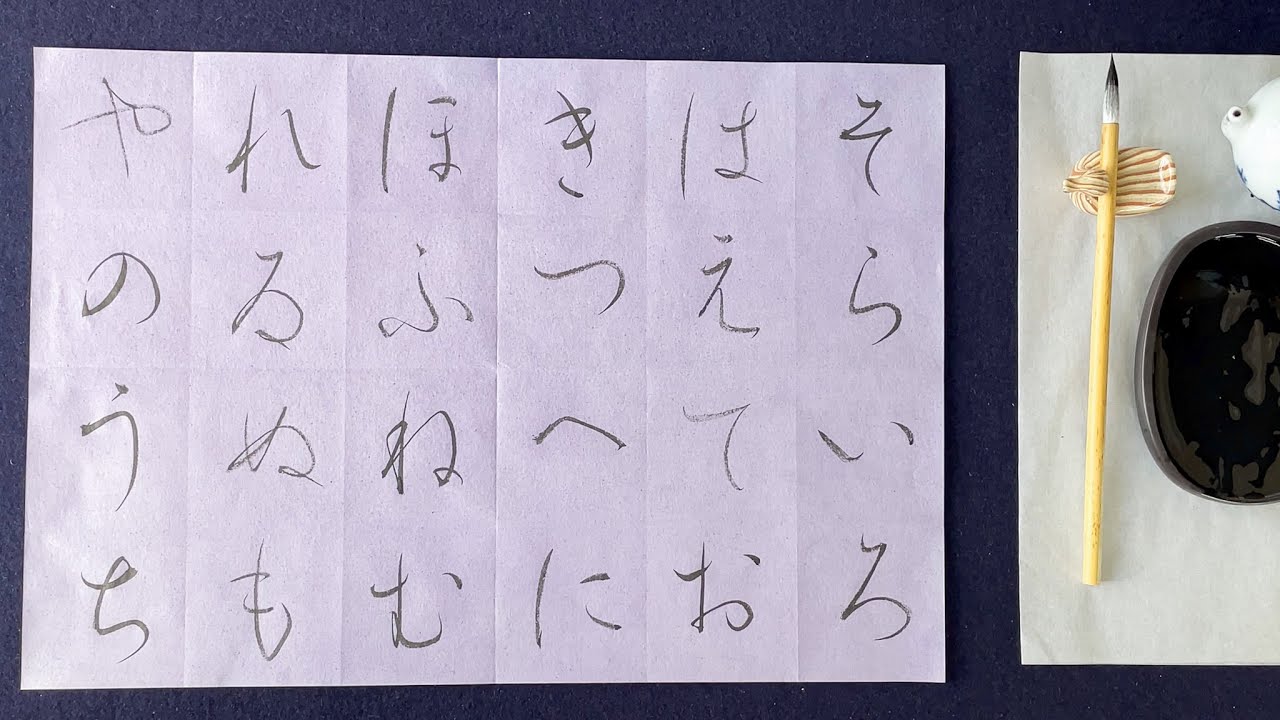 そらいろ
はえてお
きつへに
ほふねむ
れるぬも
やのうち